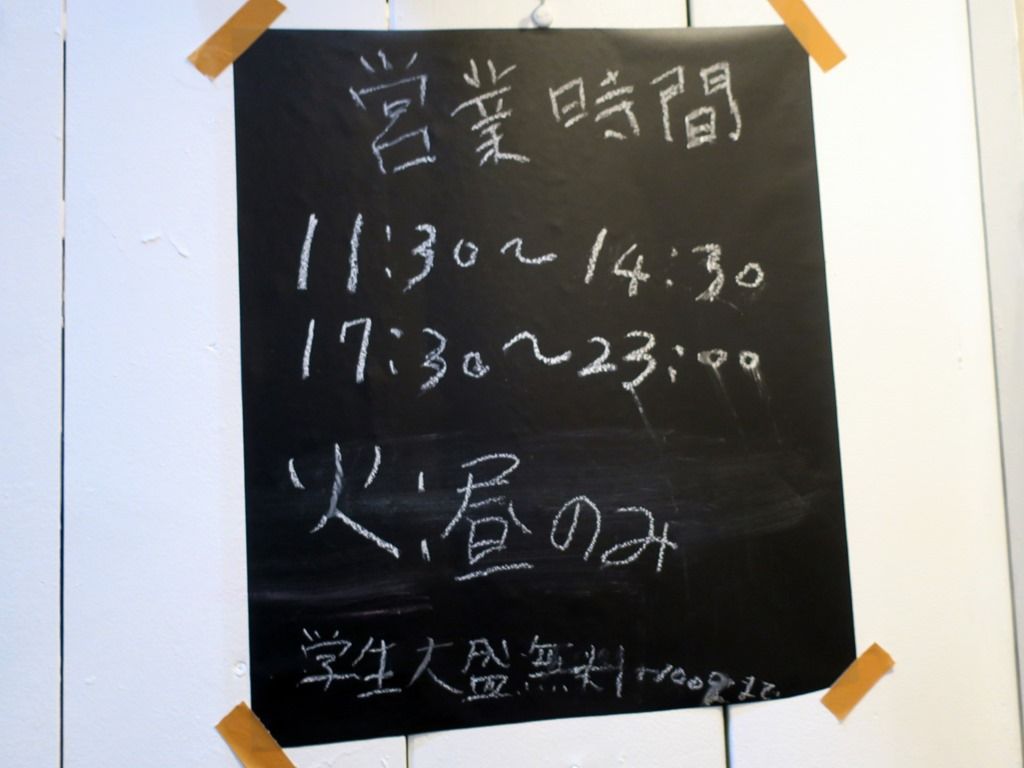 営業時間
11:30～14:30
17:30～23:00
火:昼のみ
学生大盛無料 +100gまで